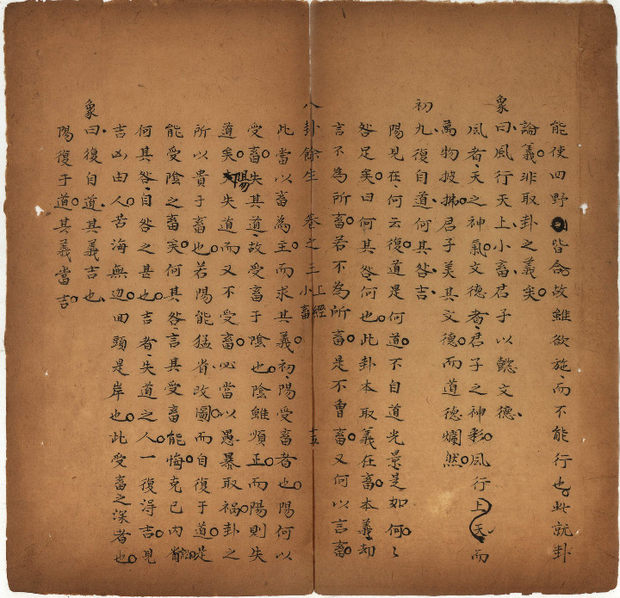 能使四野皆合故雖欲施而不能行也此就卦
論義非取卦之義矣
象曰風行天上小畜君子以懿文德
風者天之神氣文德者君子之神彩風行上天而
萬物披拂君子美其文德而道德爛然
初九復自道何其咎吉
陽見在何云復道是何道不自道光景是如何何
咎足矣曰何其咎何也此卦本取義在畜本義却
言不為所畜若不為所畜是不曾畜又何以言畜
八卦餘生 卷之三 上經 小畜 十五
此當以畜為主而求其義初陽受畜者也陽何以
受畜失其道故受畜于陰也陰雖順正而陽則失
道矣陽失道而又不受畜必當以愚暴取禍卦之
所以貴于畜也若陽能猛省改圖而自復于道是
能受陰之畜矣何其咎言其受畜能悔克己內省
何其咎自咎之甚也吉者失道之人一復得吉見
吉凶由人苦海無邊回頭是岸也此受畜之深者也
象曰復自道其義吉也
陽復于道其義當吉